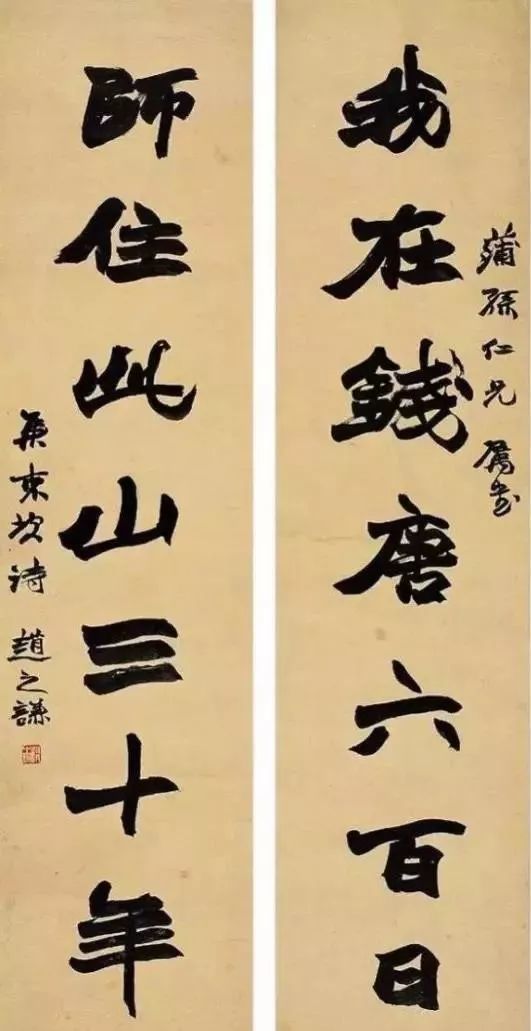 蒲孫仁兄 屬書
我在錢唐六百日
師住此山三十年
集東坡詩 趙之謙